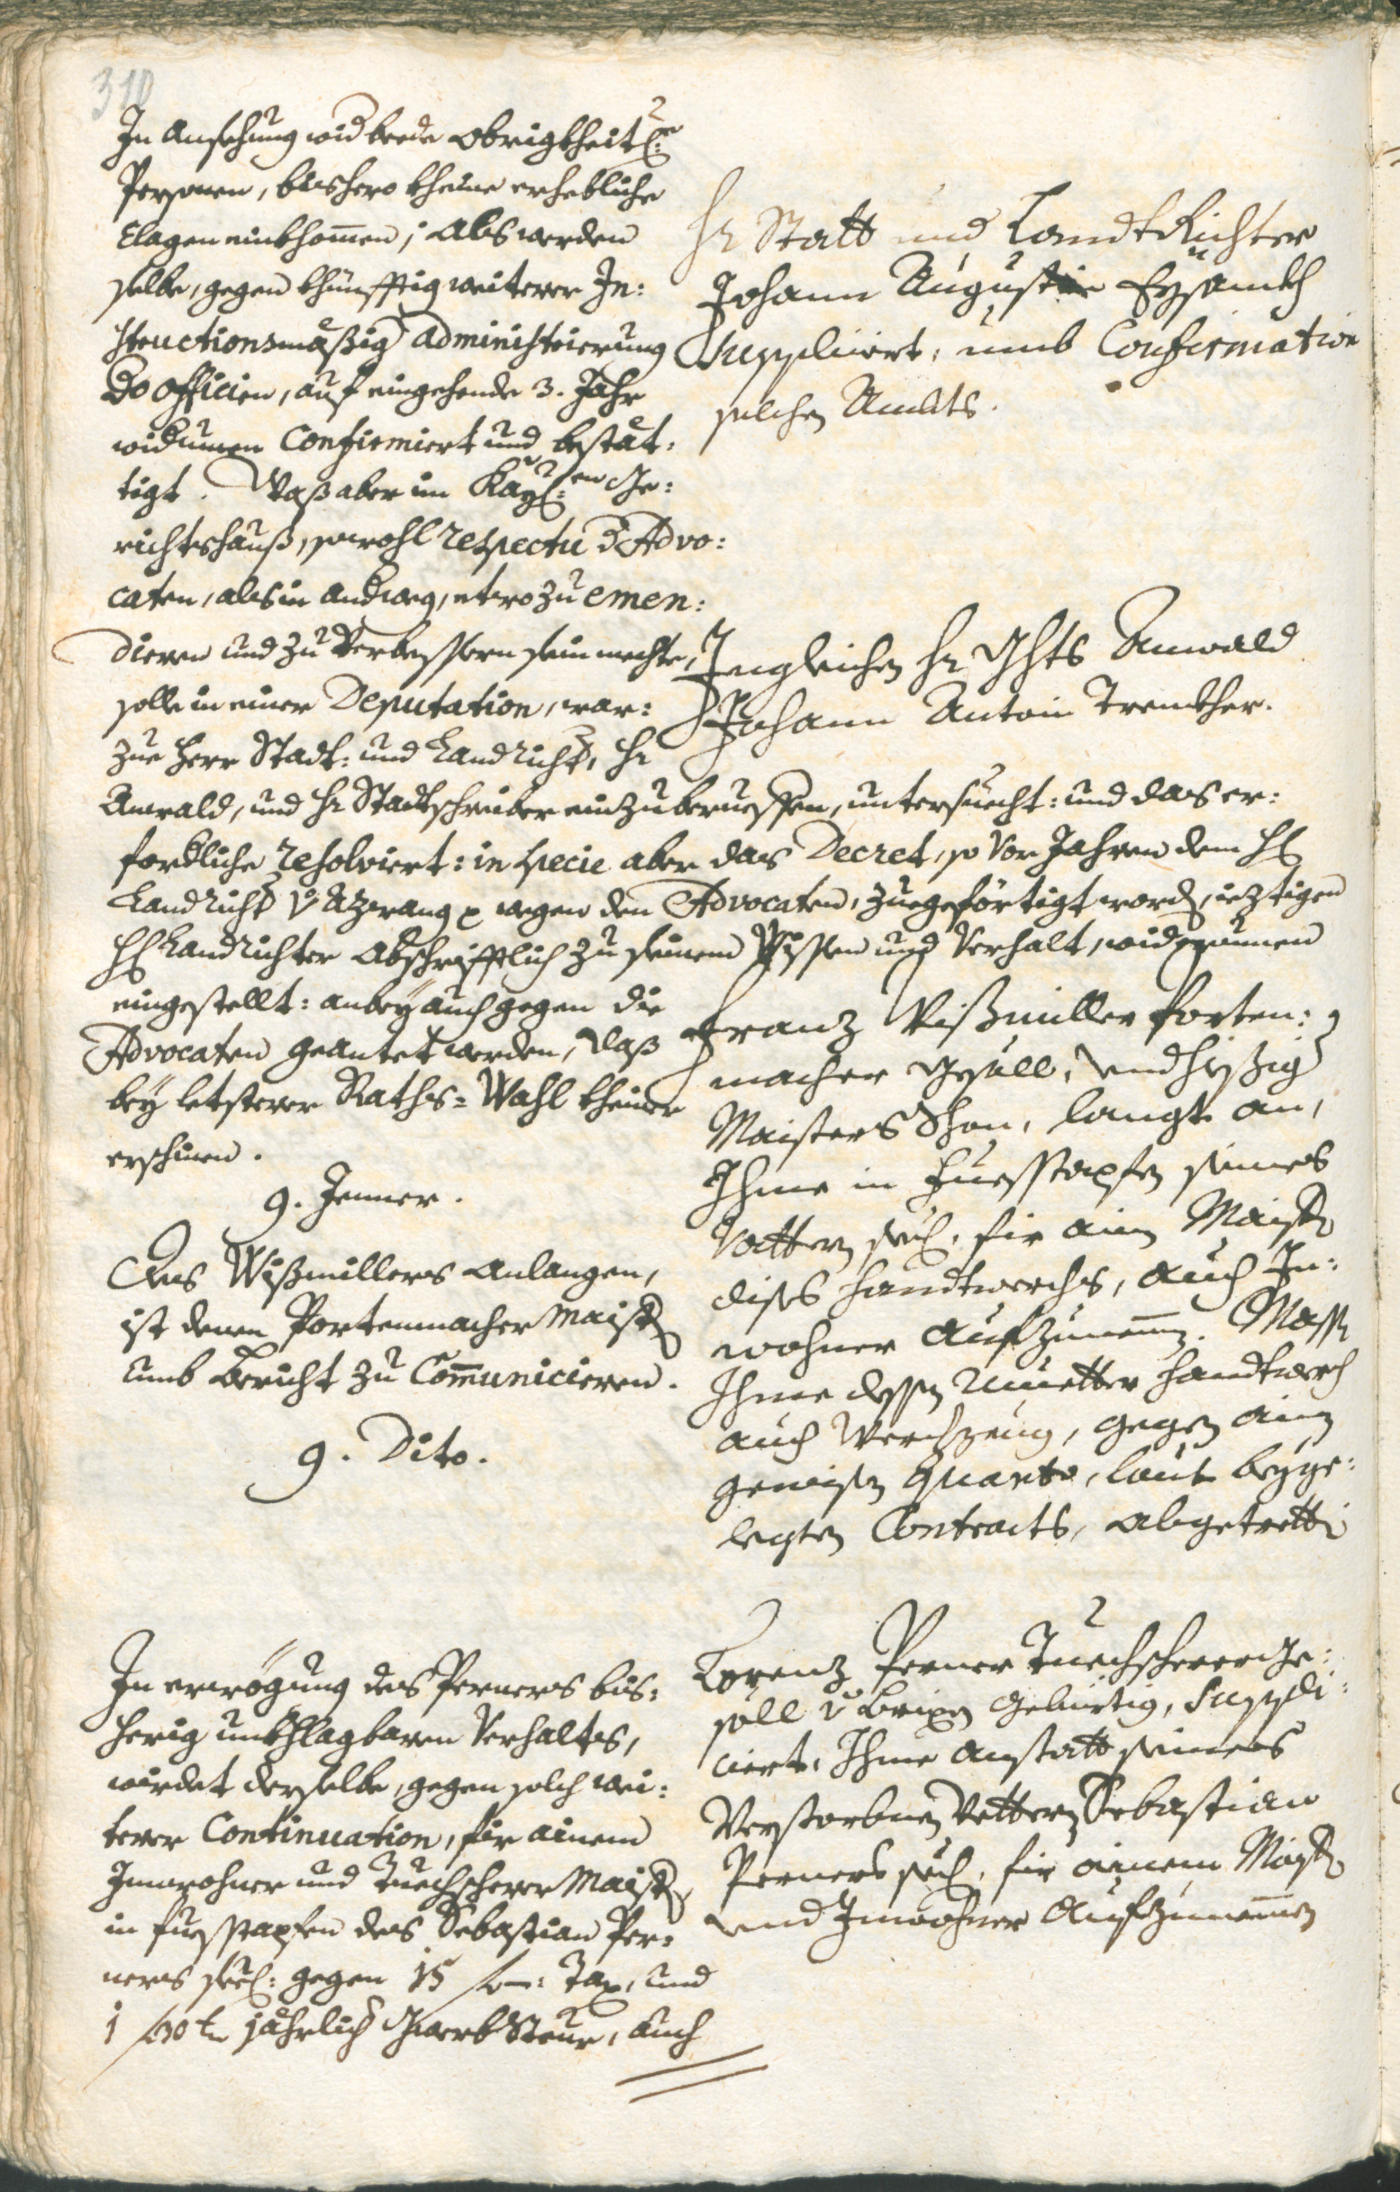 310
In Ansehung wid beede Obrigkheitl:
Personen, bishero kheine erhebliche
Clagen einkhomen; Als werden
selbe, gegen khünfftig weiterer In:
structionsmäßig Administrierung
Do officien, auf eingehende 3. Jahr
widumen Confirmiert und bestät:
tigt. Waß aber im Kayl:en Ge:
richtshauß, sowohl respectu d Advo:
caten, als in andweg, etwo zu emen:
dieren und zu Verbessern sein mechte,
solle in einer Deputation, war:
zue Herr Stadt: und Landricht, Hr
Anwald, und Hr Stadtschreiber einzuberueffen, untersuecht: und das er:
fordliche resolviert: in specie aber das Decret, so Vor Jahren dem Hl
Landricht v Azwang wegen den Advocaten, zuegeförtigt word, ieztigen
Hl Landrichter Abschrifftlich zu seinem Wissen und Verhalt, widerumen
eingestellt: anbey auch gegen die
Advocaten geantet werden, daß
bey letsterer Raths-Wahl kheiner
erschinen.
9. Jenner.
Des Wißmillers Anlangen,
ist denen Portenmacher Maist
umb Bericht zu Comunicieren.
9. Dito.
In erwögung des Perners bis:
herig unkhlagbaren Verhaltes,
wirdet derselbe, gegen solch wei:
terer Continuation, für ainem
Innwohner und Tuechscherer Maist
in fuesstapfen des Sebastian Per:
ners seel: gegen 15 f Tax, und
1 f 30 kr jährlich Gwerb Steur, auch
Hr Statt und Landt Richter
Johann Augustin
suppliciert, umb Confirmation
solchen Ambts.
Ingleichen Hr Ghts Anwald
Johann Antoni Trenkher.
Franz Wißmiller Porten:
macher Gesell, und hießig
Maisters Sohn, langt an,
Ihme in Fuesstapfen seines
Vattern seel. für ain Maist
dises Handtwerchs, auch In:
wohner aufzunem. Massen
Ihme dessen Muetter Handtwerch
auch Werchzeug, gegen ain
gewisen Quanto, laut beyge:
legten Contracts, abgetretten
Lorenz Perner Tuechscherer Ge:
söll v Brixen Gebürtig, Suppli:
ciert, Ihme anstatt seines
Verstorbnen Vettern Sebastian
Perners seel. für ainem Maist
und Innwohner Aufzunemmen